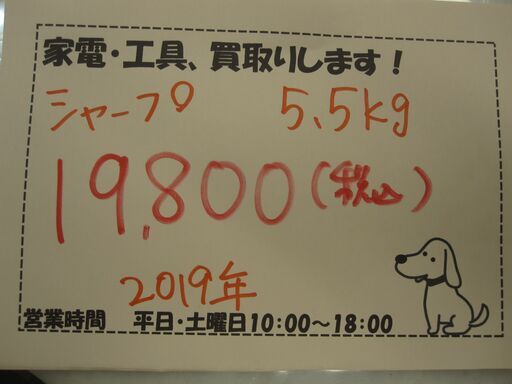 家電・工具、買取りします！
シャープ 5.5kg
19,800(税込)
2019年
営業時間 平日・土曜日10:00～18:00